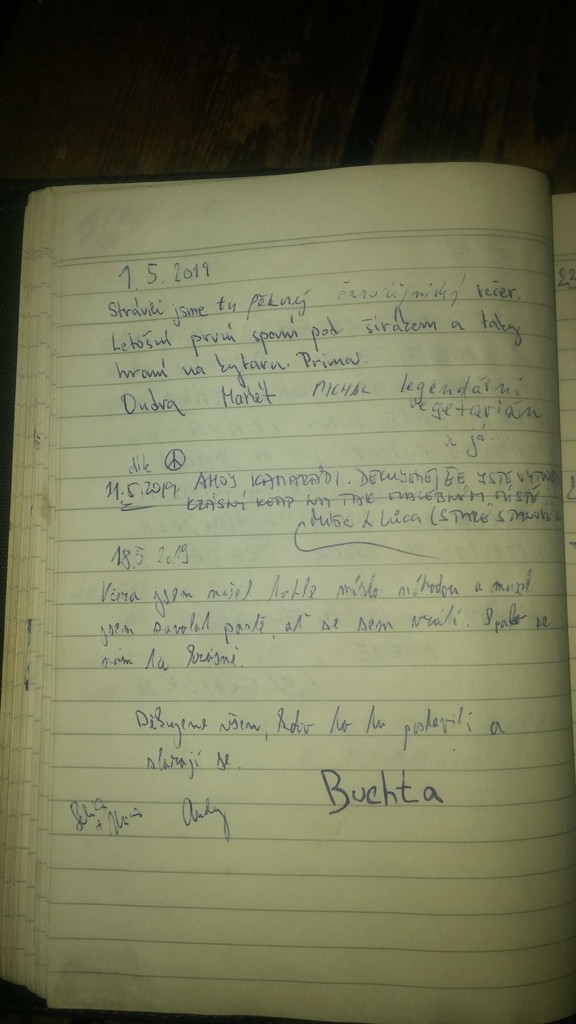 1. 5. 2019
Strávili jsme tu pěkný čarodějnický večer.
Letošní první spaní pod širákem a taky
hraní na kytaru. Prima.
Ondra Matěj MICHAL legendární
vegetarián
a já...
dík
11.5.2019. AHOJ KAMARÁDI. DĚKUJEME ŽE JSTE
KRÁSNÝ KEMP NA TAK MALEBNÉM MÍSTĚ
Lůca (STARÉ
18.5 2019
Včera jsem našel tohle místo náhodou a musel
jsem zavolat partě, ať se sem vrátí. Spalo se
nám tu krásně.
Děkujeme všem, kdo to tu postavili a
starají se.
Buchta
Andy
22